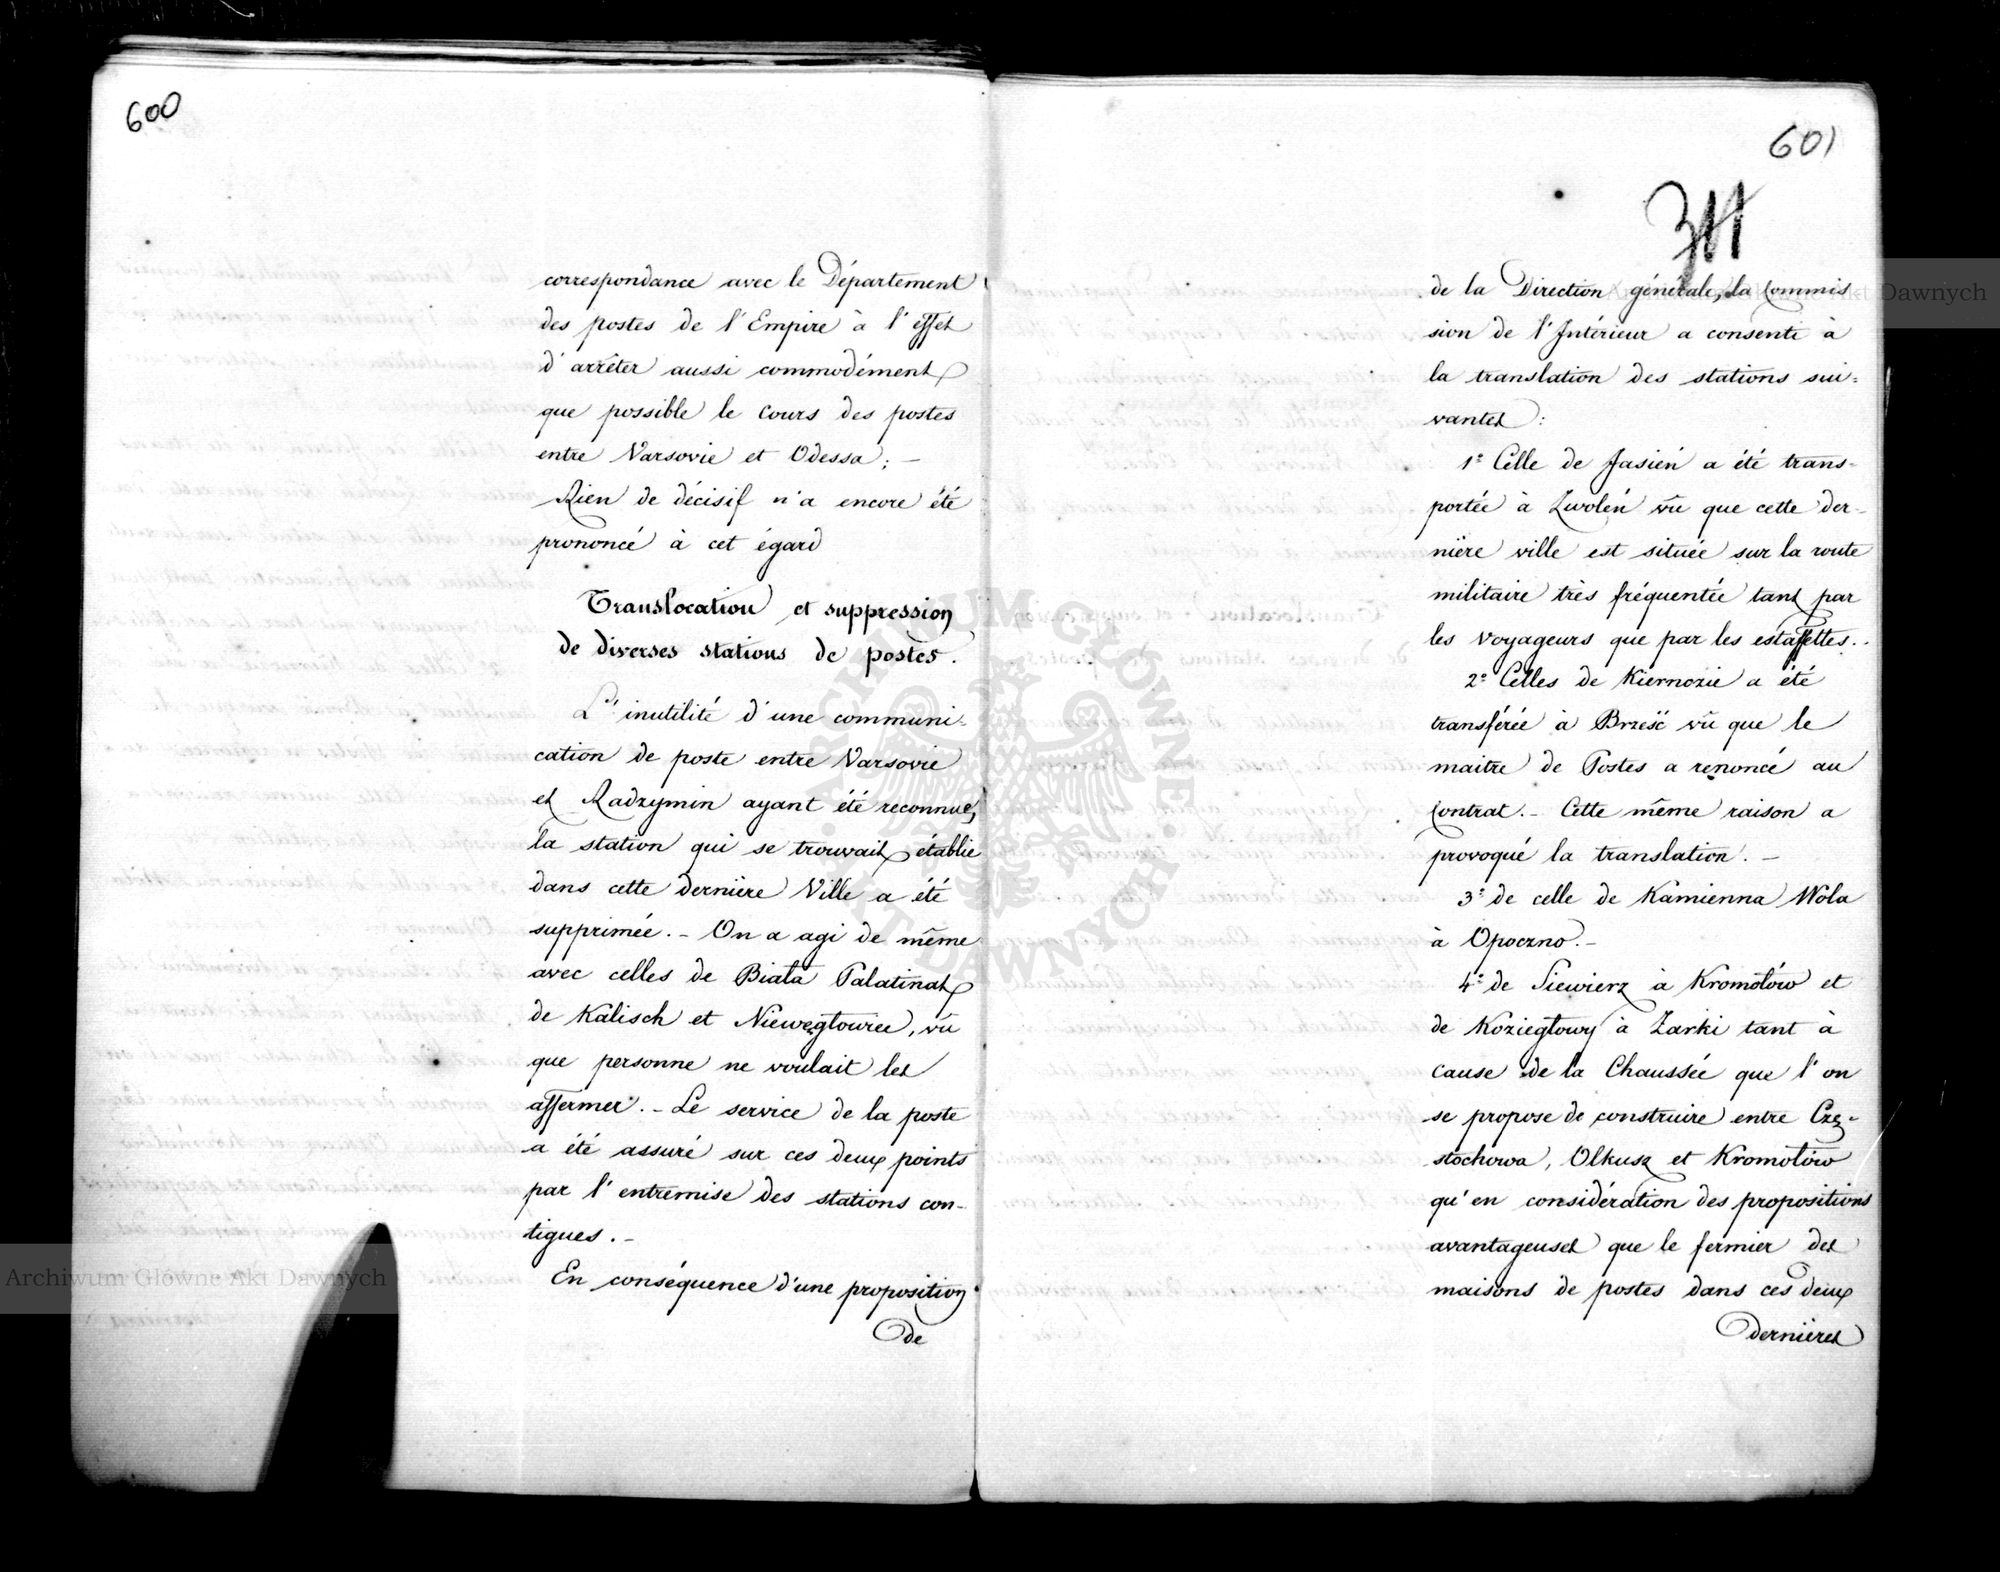 600
correspondance avec le Département
des postes de l'Empire à l'effet
d'arrêter aussi commodément
que possible le Cours des postes
entre Varsovie et Odessa; –
Rien de décisif n'a encore été
prononcé à cet égard
Translocation et suppression
de diverses stations de postes.
L'inutilité d'une communi-
cation de poste entre Varsovie
et Radzymin ayant été reconnue,
la station qui se trouvait établie
dans cette dernière Ville a été
supprimée. – On a agi de même
avec celles de Biała Palatinat
de Kalisch et Niewęgłowice, vû
que personne ne voulait les
affermer. – Le service de la poste
a été assuré sur ces deux points
par l'entremise des stations con-
tigues. –
En conséquence d'une proposition
de
601
de la Direction générale, la Commis
sion de l'Intérieur a consenti à
la translation des stations sui=
vantes :
1º Celle de Jasień a été trans-
portée à Zwoleń vû que cette der-
nière ville est située sur la route
militaire très fréquentée tant par
les voyageurs que par les estaffettes. -
2º Celles de Kiernozie a été
transférée à Brześć vû que le
maitre de Postes a renoncé au
contrat. – Cette même raison a
provoqué la translation. –
3º de celle de Kamienna Wola
à Opoczno. –
4º de Siewierz à Kromołów et
de Koziegłowy à Zarki tant à
cause de la Chaussée que l'on
se propose de construire entre Czę-
stochowa, Olkusz et Kromołów
qu'en considération des propositions
avantageuses que le fermier des
maisons de postes dans ces deux
dernières
Archiwum Główne Akt Dawnych
ARCHIWUM GŁÓWNE AKT DAWNYCH